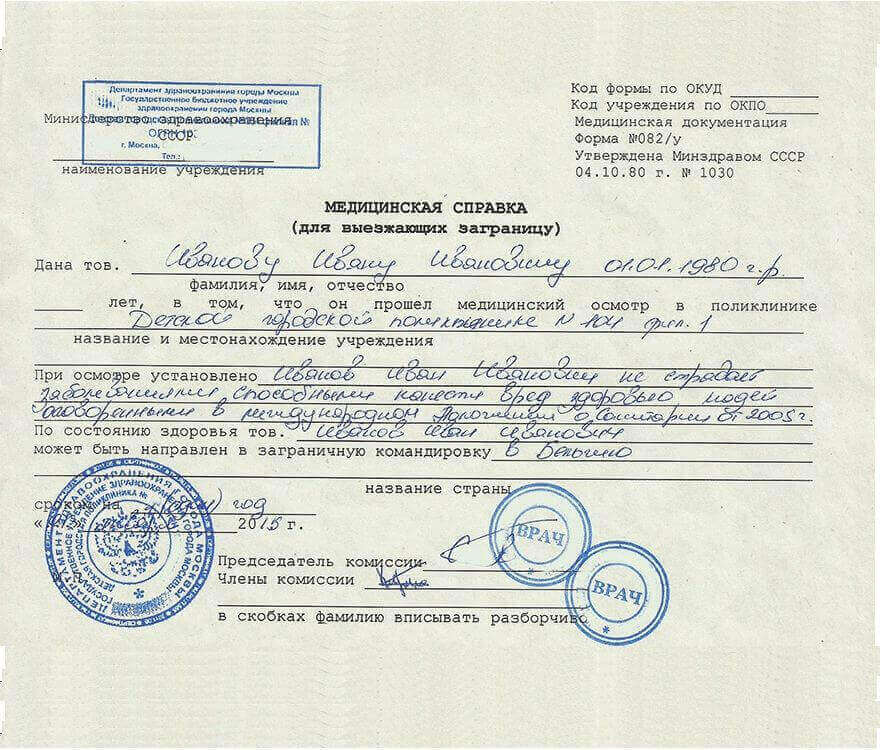 Департамент здравоохранения города Москвы
Государственное бюджетное учреждение
здравоохранения города Москвы
Министерство здравоохранения
СССР
ОГРН
г. Москва,
Тел.:
наименование учреждения
Код формы по ОКУД
Код учреждения по ОКПО
Медицинская документация
Форма №082/у
Утверждена Минздравом СССР
04.10.80 г. № 1030
МЕДИЦИНСКАЯ СПРАВКА
(для выезжающих заграницу)
Дана тов. Иванову Ивану Ивановичу 01.01.1980 г.р.
фамилия, имя, отчество
лет, в том, что он прошел медицинский осмотр в поликлинике
Детской городской поликлинике N 104 фил. 1
название и местонахождение учреждения
При осмотре установлено Иванов Иван Иванович не страдает
заболеваниями способными нанести вред здоровью людей
оговоренными в международном Положении о Санитарии от 2005 г.
По состоянию здоровья тов. Иванов Иван Иванович
может быть направлен в заграничную командировку в Бельгию
название страны
сроком на 1 (один) год
2015 г.
Председатель комиссии
Члены комиссии
в скобках фамилию вписывать разборчиво
ВРАЧ
ВРАЧ